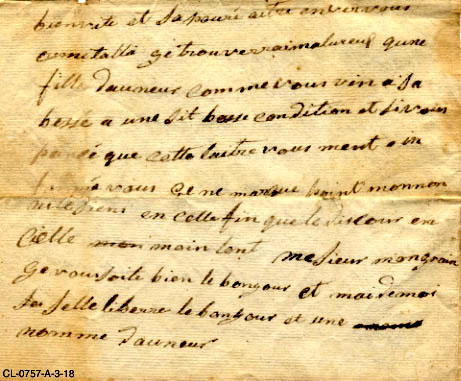 bienvite et sa poura aitre envervous
cemitalla gé trouverraimalureuf qune
fille dauneur comme vous vin a sa
bessé a une sit basse condition et si vous
pancé que cette laitre vous ment
vous ge ne marque point monnon
ni le siens en celle fin que le discour en
cielle main tont mesieur mongrain
ge vous soite bien le bongour et mai demoi
selle liberze le bongour et une
nomme dauneur
CL-0757-A-3-18